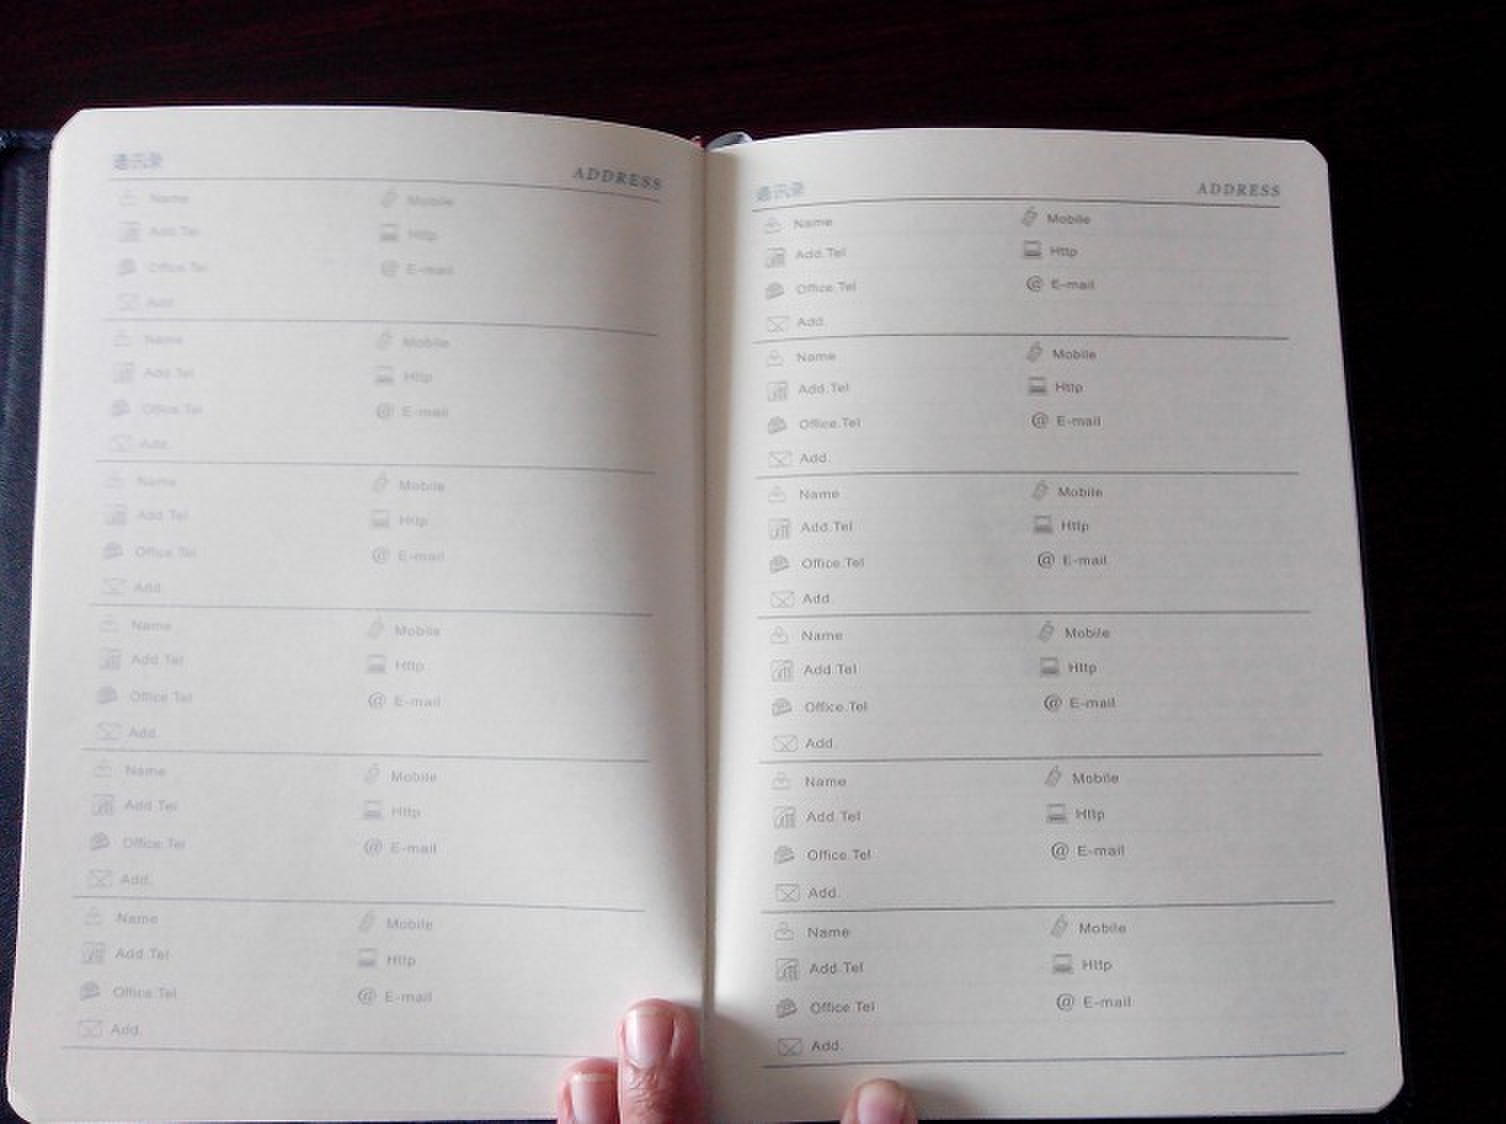 通讯录
ADDRESS
Name Mobile
Add.Tel Http
Office.Tel @ E-mail
Add.
Name Mobile
Add.Tel Http
Office.Tel @ E-mail
Add.
Name Mobile
Add.Tel Http
Office.Tel @ E-mail
Add.
Name Mobile
Add.Tel Http
Office.Tel @ E-mail
Add.
Name Mobile
Add.Tel Http
Office.Tel @ E-mail
Add.
Name Mobile
Add.Tel Http
Office.Tel @ E-mail
Add.
通讯录
ADDRESS
Name Mobile
Add.Tel Http
Office.Tel @ E-mail
Add.
Name Mobile
Add.Tel Http
Office.Tel @ E-mail
Add.
Name Mobile
Add.Tel Http
Office.Tel @ E-mail
Add.
Name Mobile
Add.Tel Http
Office.Tel @ E-mail
Add.
Name Mobile
Add.Tel Http
Office.Tel @ E-mail
Add.
Name Mobile
Add.Tel Http
Office.Tel @ E-mail
Add.